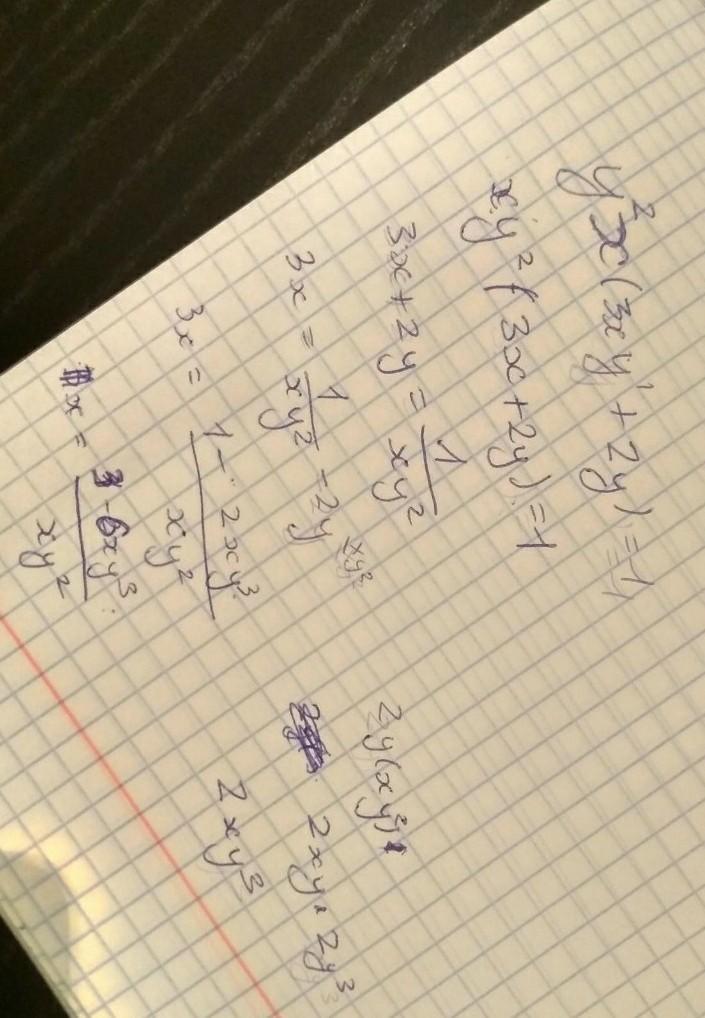 y²x(3xy' + 2y) = 1
xy²(3x + 2y) = 1
3x + 2y = 1/xy²
3x = 1/xy² - 2y xy²
3x = (1 - 2xy³)/xy²
x = (3 - 6xy³)/xy²
2y(xy²)
2xy · 2y³
2xy³